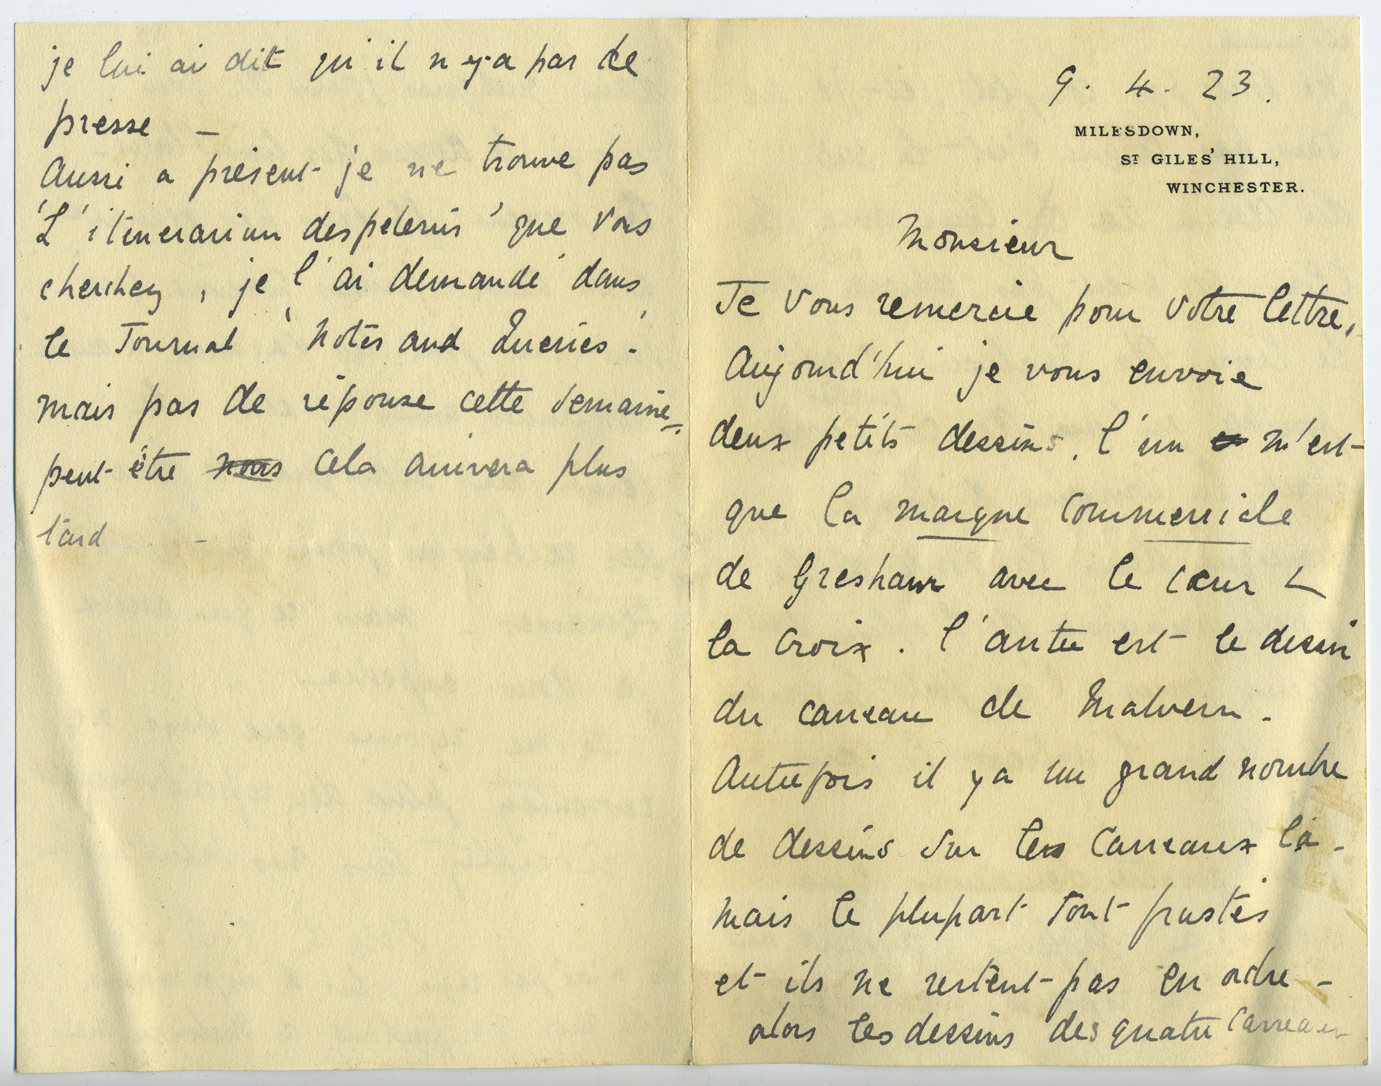 9. 4. 23.
MILESDOWN,
ST GILES' HILL,
WINCHESTER.
Monsieur
Je vous remercie pour votre lettre,
Aujourd'hui je vous envoie
deux petits dessins, l'un m'est
que la marque commercicle
de Gresham avec le cœur &
la croix. l'autre est le dessin
du carreau de Malvern.
Autrefois il y a un grand nombre
de dessins sur les carreaux là -
mais le plupart sont frustés
et ils ne restent pas en ordre -
alors les dessins des quatre carreaux
je lui ai dit qu'il n'y a pas de
presse -
Aussi a présent je ne trouve pas
'L'itinerarium des pelerins' que vous
cherchez, je l'ai demandé dans
le Journal 'Notes and Queries'.
mais pas de réponse cette semaine,
peut être nous cela arrivera plus
tard -